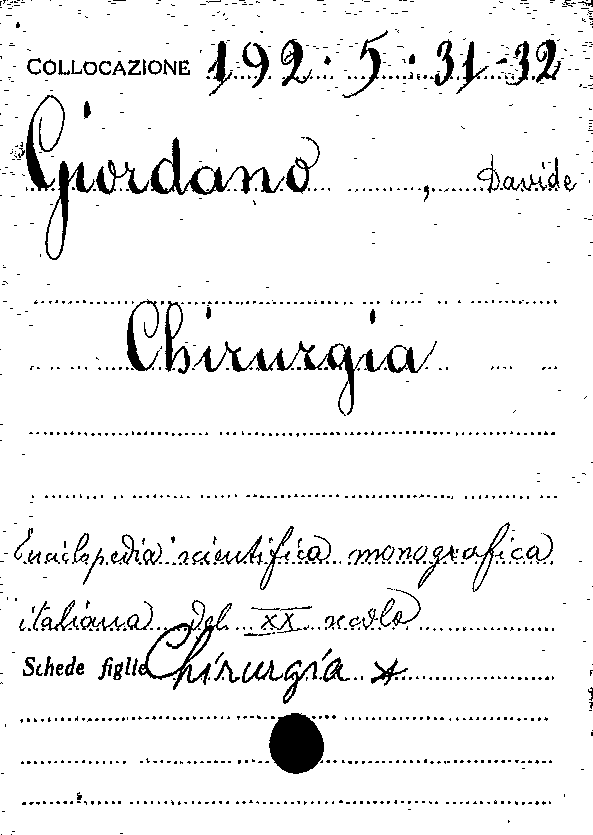 COLLOCAZIONE 192·5·31-32
Giordano , Davide
Chirurgia
Enciclopedia scientifica monografica
italiana del XX secolo
Schede figlie Chirurgia *